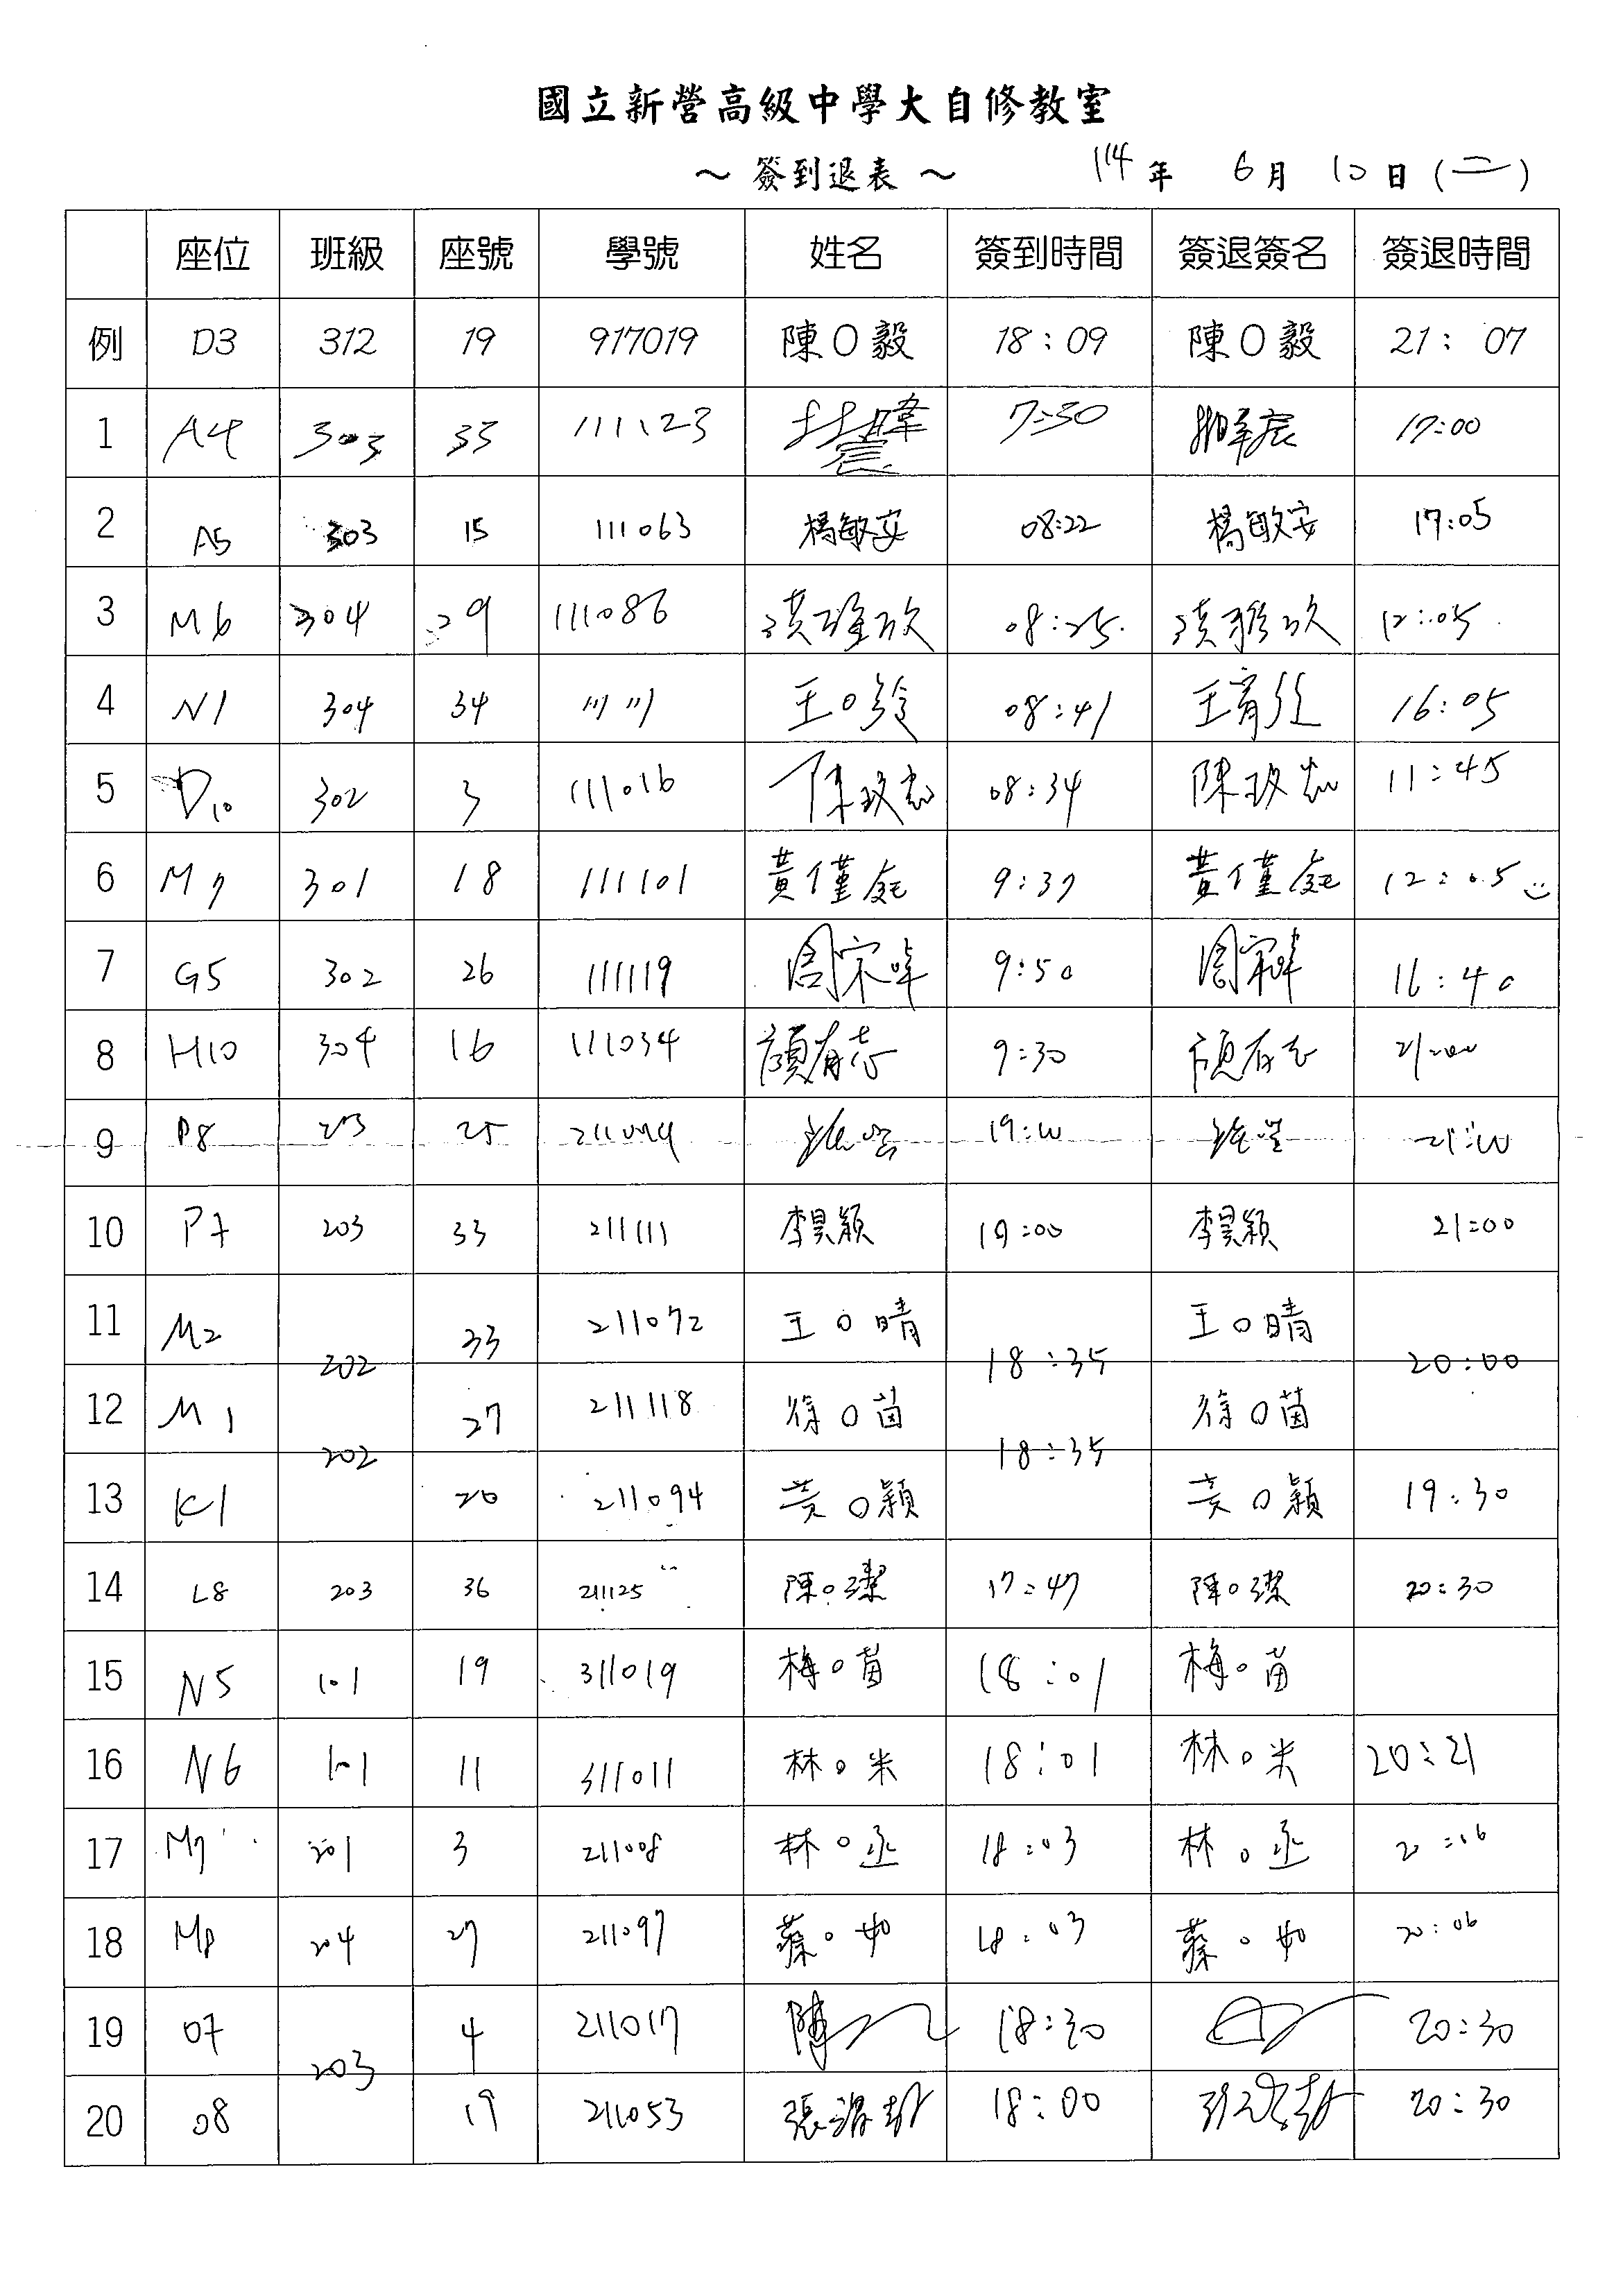 國立新營高級中學大自修教室
～ 簽到退表 ～ 114 年 6 月 10 日 (二)
座位 班級 座號 學號 姓名 簽到時間 簽退簽名 簽退時間
例 D3 312 19 917019 陳O毅 18:09 陳O毅 21:07
1 A4 303 33 111123 7:30 17:00
2 A5 303 15 111063 楊敏安 08:22 楊敏安 17:05
3 M6 304 29 111086 08:25 12:05
4 N1 304 34 王O 08:41 王 16:05
5 D10 302 3 111016 陳玟 08:34 陳玟 11:45
6 M7 301 18 111101 黃僅 9:37 黃僅 12:05
7 G5 302 26 111119 周 9:50 周 16:40
8 H10 304 16 111034 顏有志 9:30 顏有志 21:00
9 P8 203 25 19:00 21:00
10 P7 203 33 211111 李昊穎 19:00 李昊穎 21:00
11 M2 202 33 211072 王O晴 18:35 王O晴 20:00
12 M1 202 27 211118 徐O茵 18:35 徐O茵
13 K1 20 211094 黃O穎 黃O穎 19:30
14 L8 203 36 211125 陳O潔 17:47 陳O潔 20:30
15 N5 101 19 311019 梅O苗 18:01 梅O苗
16 N6 101 11 311011 林O米 18:01 林O米 20:21
17 M7 201 3 211008 林O丞 18:03 林O丞 20:06
18 M8 204 27 211097 蔡O如 18:03 蔡O如 20:06
19 O7 203 4 211017 陳 18:30 20:30
20 O8 19 211053 張 18:00 20:30